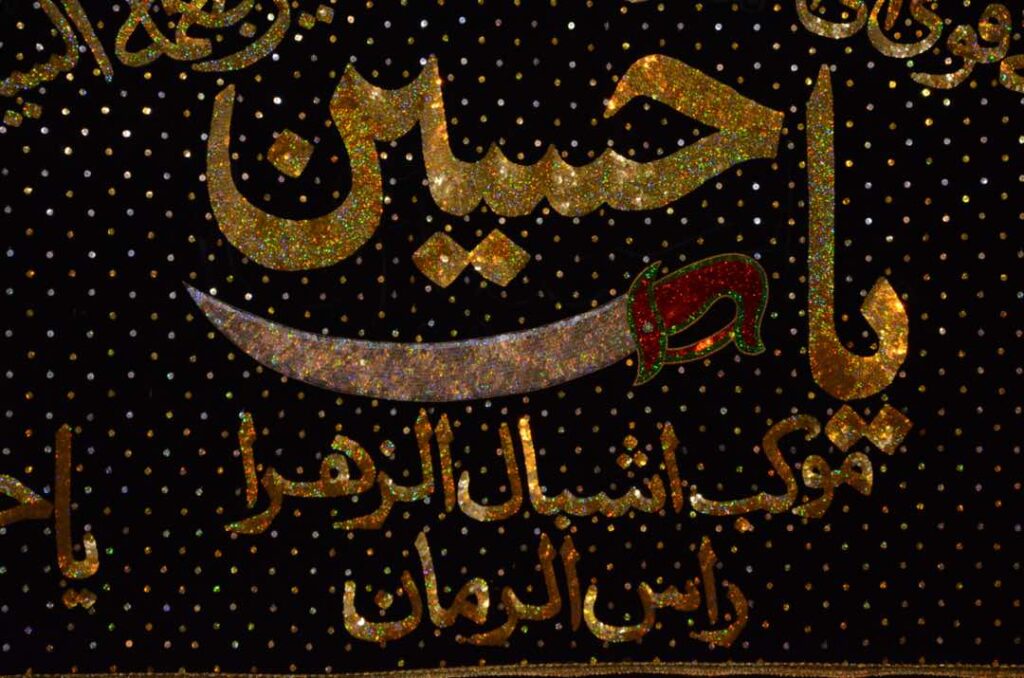 يا حسين
موكب اشبال الزهرا
راس الرمان
يا